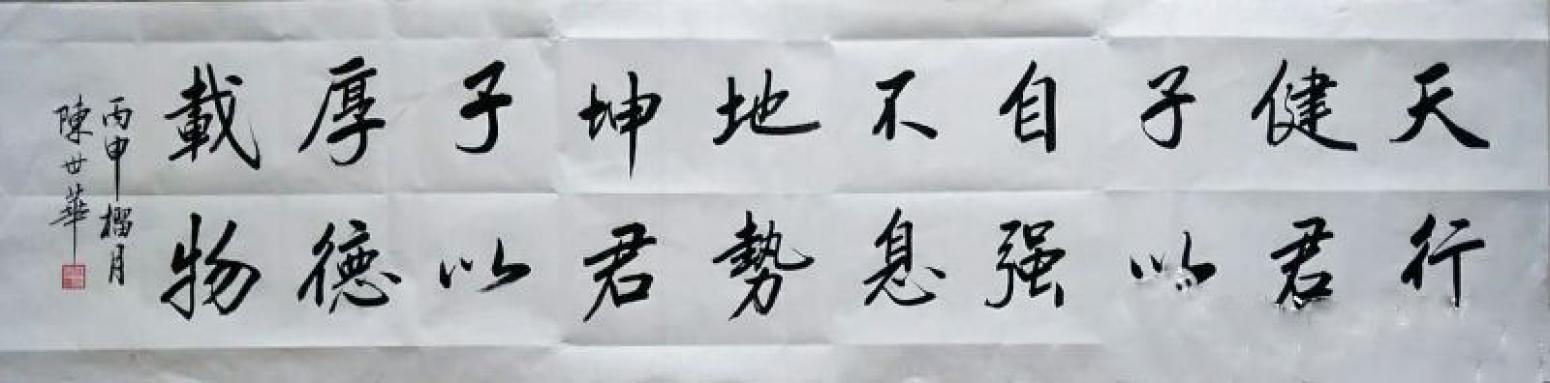 天行
健君
子以
自强
不息
地勢
坤君
子以
厚德
載物
丙申榴月
陳世華